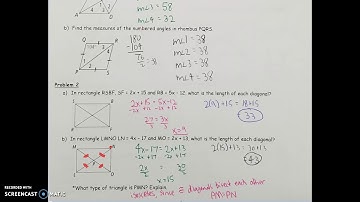 m∠3 = 58
m∠4 = 32
b) Find the measures of the numbered angles in rhombus PQRS.
180
-104
76
2
m∠1 = 38
m∠2 = 38
m∠3 = 38
m∠4 = 38
Problem 2
a) In rectangle RSBF, SF = 2x + 15 and RB = 5x - 12. what is the length of each diagonal?
2x+15 = 5x-12
-2x +12 -2x +12
27 = 3x
3 3
x=9
2(9)+15 = 18+15
33
b) In rectangle LMNO LN = 4x - 17 and MO = 2x + 13. what is the length of each diagonal?
4x-17 = 2x+13
-2x +17 -2x +17
2x = 30
x=15
2(15)+13: 30+13
43
*What type of triangle is PMN? Explain.
isosceles, since ≅ diagonals bisect each other
PM=PN
RECORDED WITH
SCREENCAST-O-MATIC